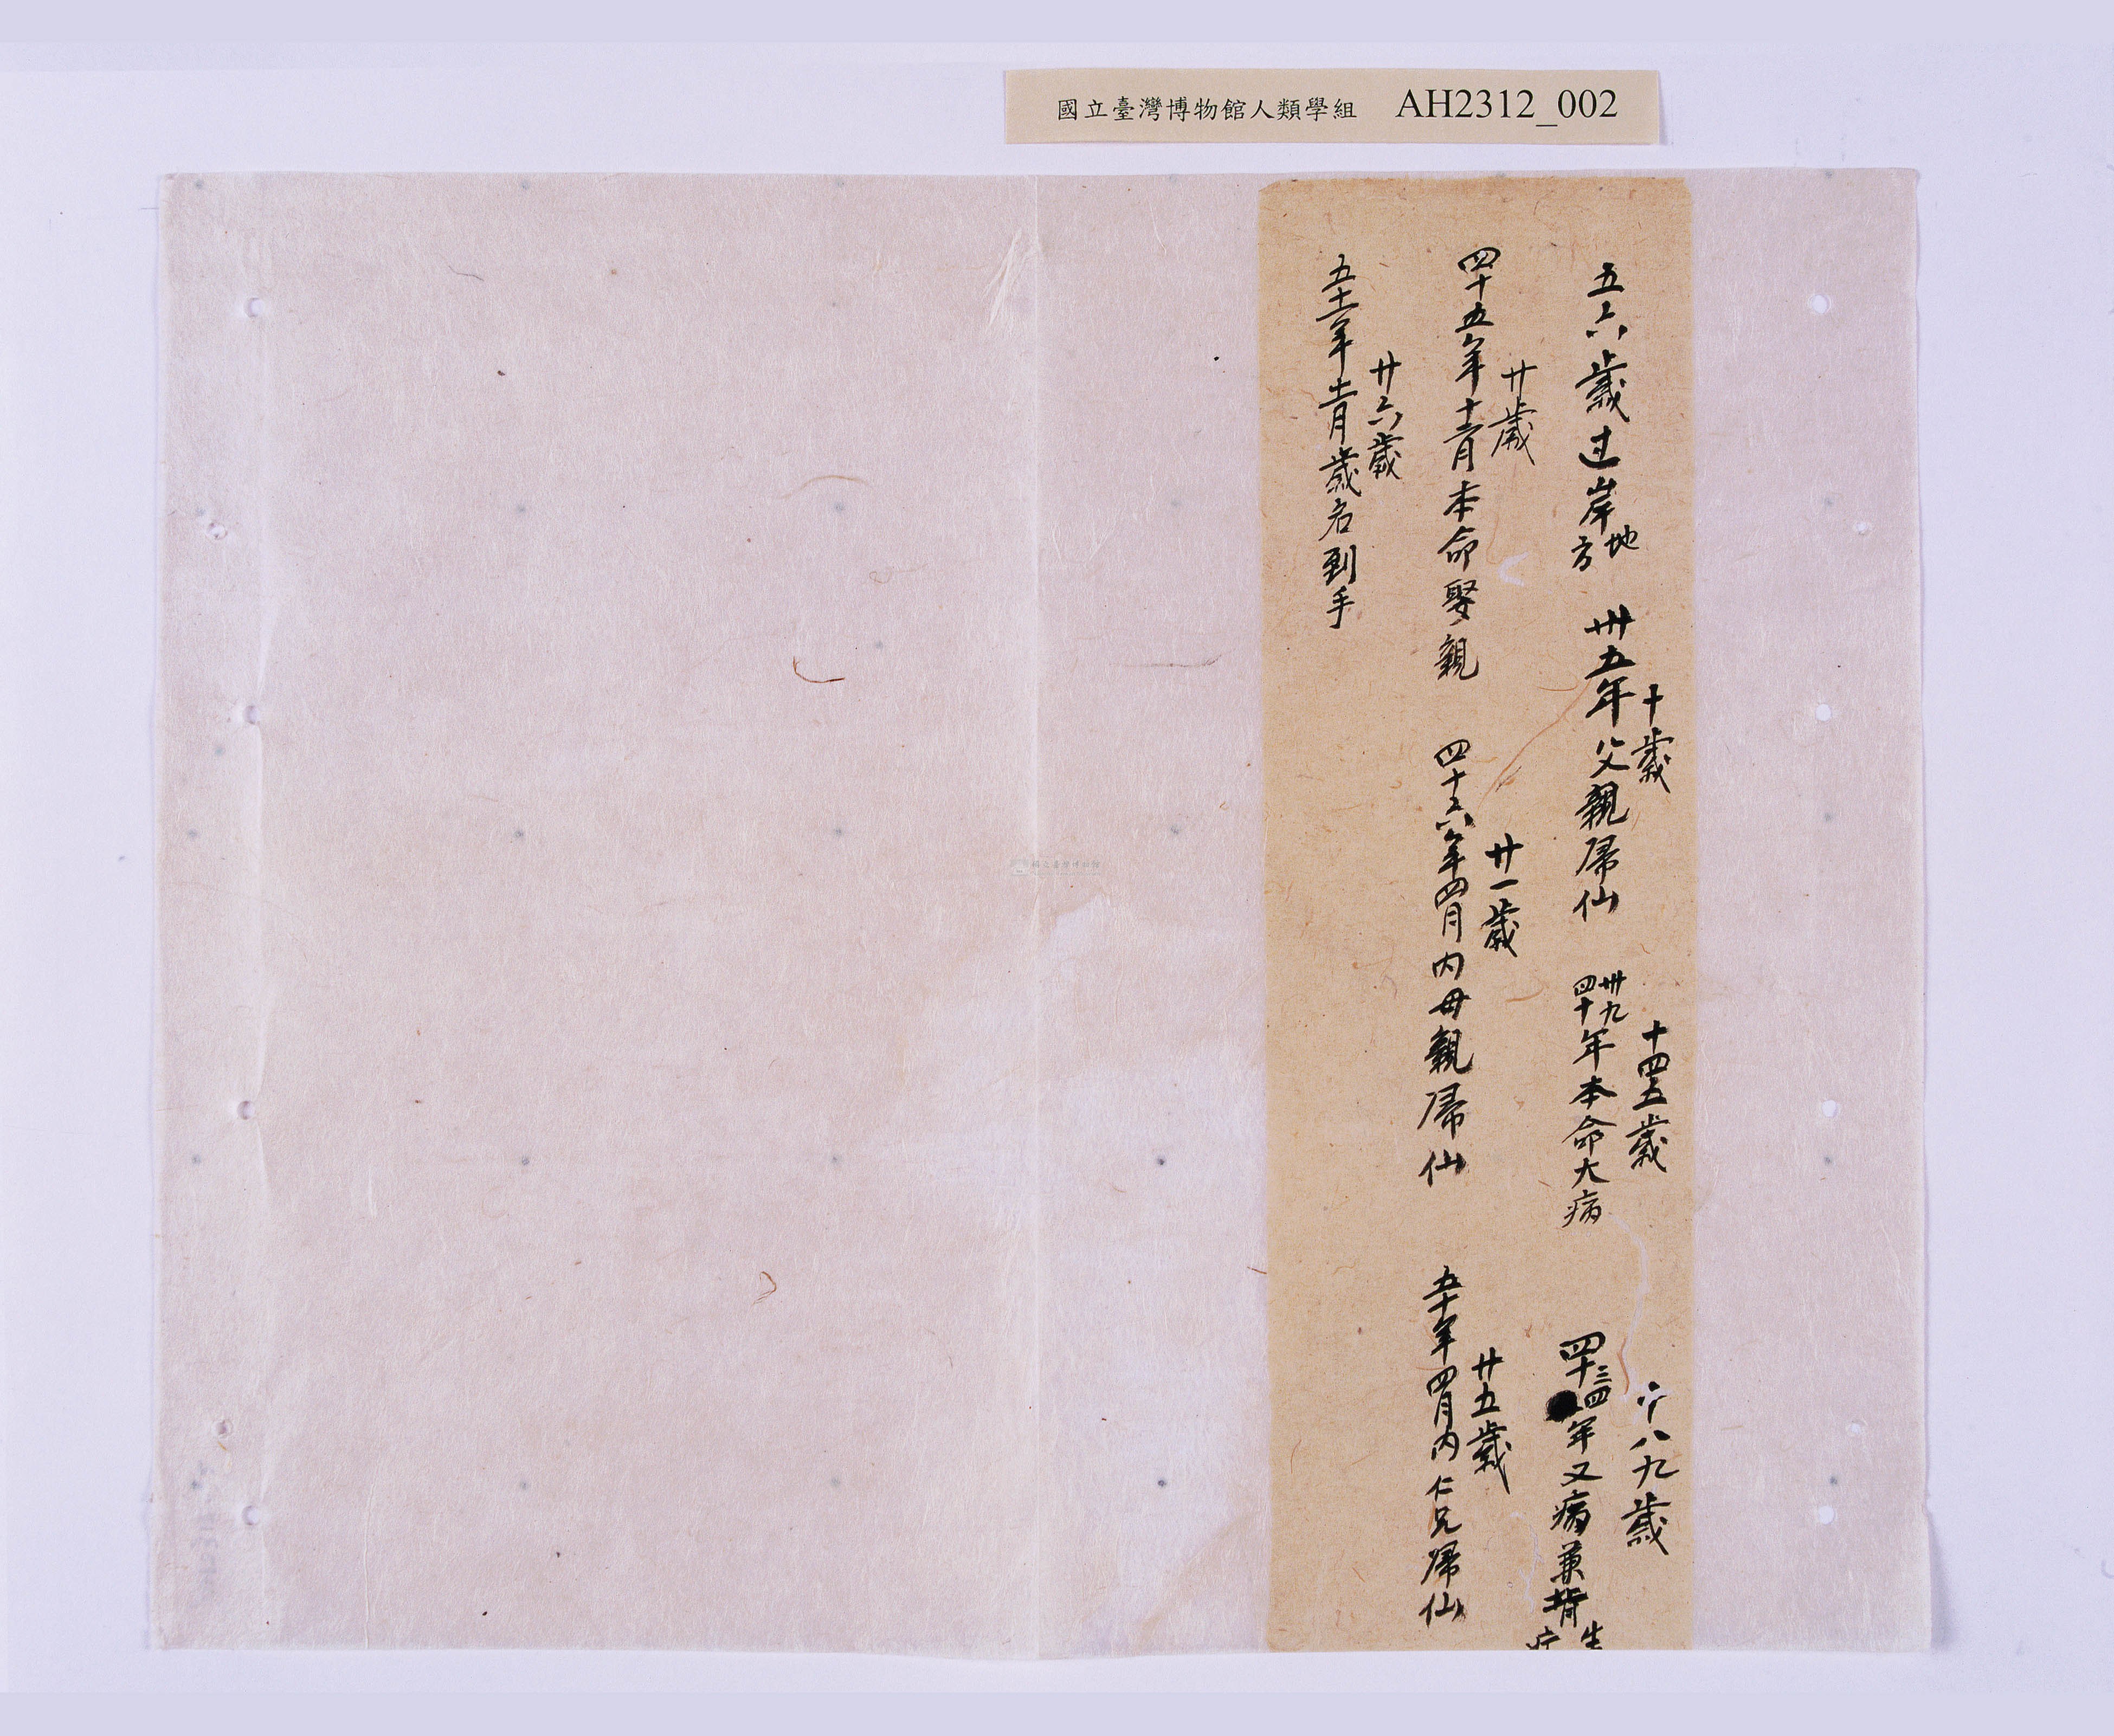 國立臺灣博物館人類學組 AH2312_002
五六歲过岸地方
卅五年父親帰仙
十歲
卅九四十年本命大病
十四五歲
四十三四年又病兼背生
十八九歲
四十五年十二月本命娶親
廿歲
四十六年四月內母親帰仙
廿一歲
五十年四月內仁兄帰仙
廿五歲
五十一年十二月歲名到手
廿六歲